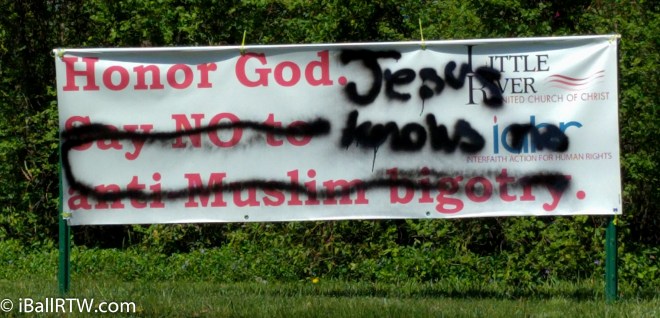 Honor God.
Say NO to
anti Muslim bigotry.
Jesus
knows
LITTLE
RIVER
UNITED CHURCH OF CHRIST
INTERFAITH ACTION FOR HUMAN RIGHTS
© iBallRTW.com